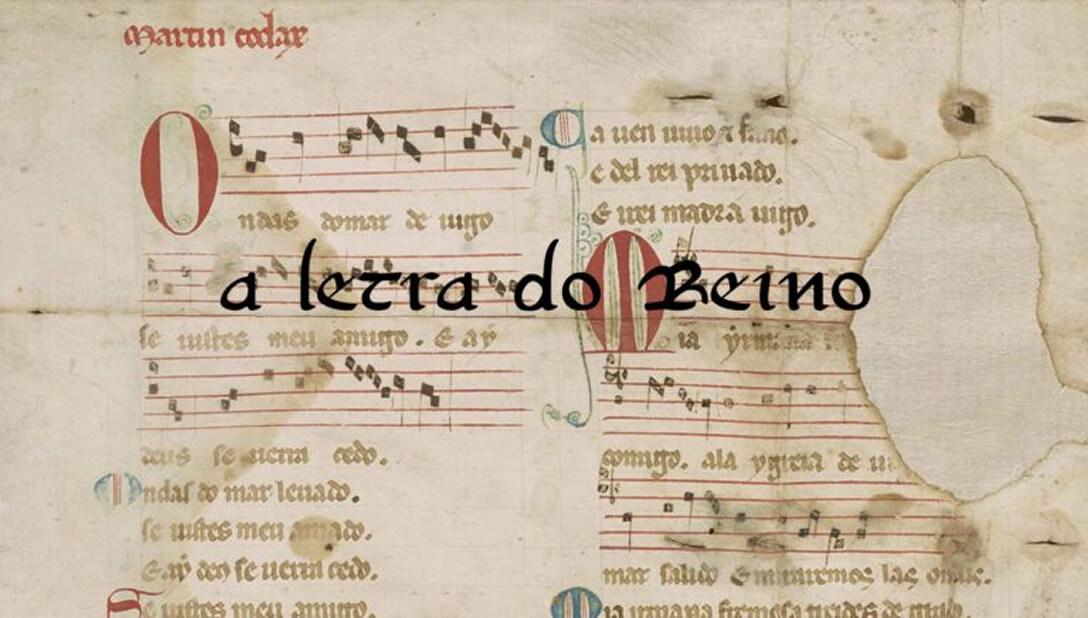 Martin codax
Ondas domar de uigo
se uistes meu amigo. E aẏ
deus se uerra cedo.
Ondas do mar leuado.
se uistes meu amado.
E aẏ deus se uerra cedo.
Se uistes meu amigo.
Ca uen uiuo ⁊ sano.
e del rei priuado.
E irei madra uigo.
Mia ẏrmana
comigo. ala ygreia de ui
mar salido E miraremos las ondas.
Mia irmana fremosa treides de grado.
a letra do Reino